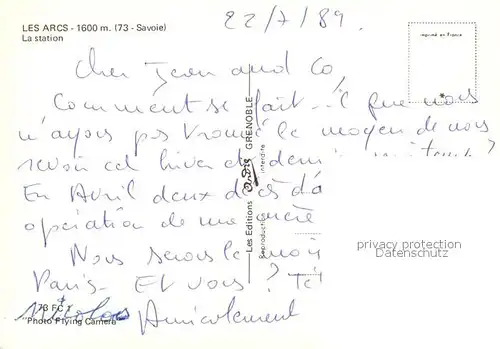 LES ARCS - 1600 m. (73 - Savoie)
La station
22/7/89.
imprimé en France
Cher Jean and Co,
Comment se fait-il que nous
n'ayons pas trouvé le moyen de nous
revoir cet hiver et
En Avril deux décès
opération de
Nous serons le
Paris - Et vous ?
Amicalement
73 FC
Photo Flying Camera
Les Editions André GRENOBLE
Reproduction interdite
privacy protection
Datenschutz